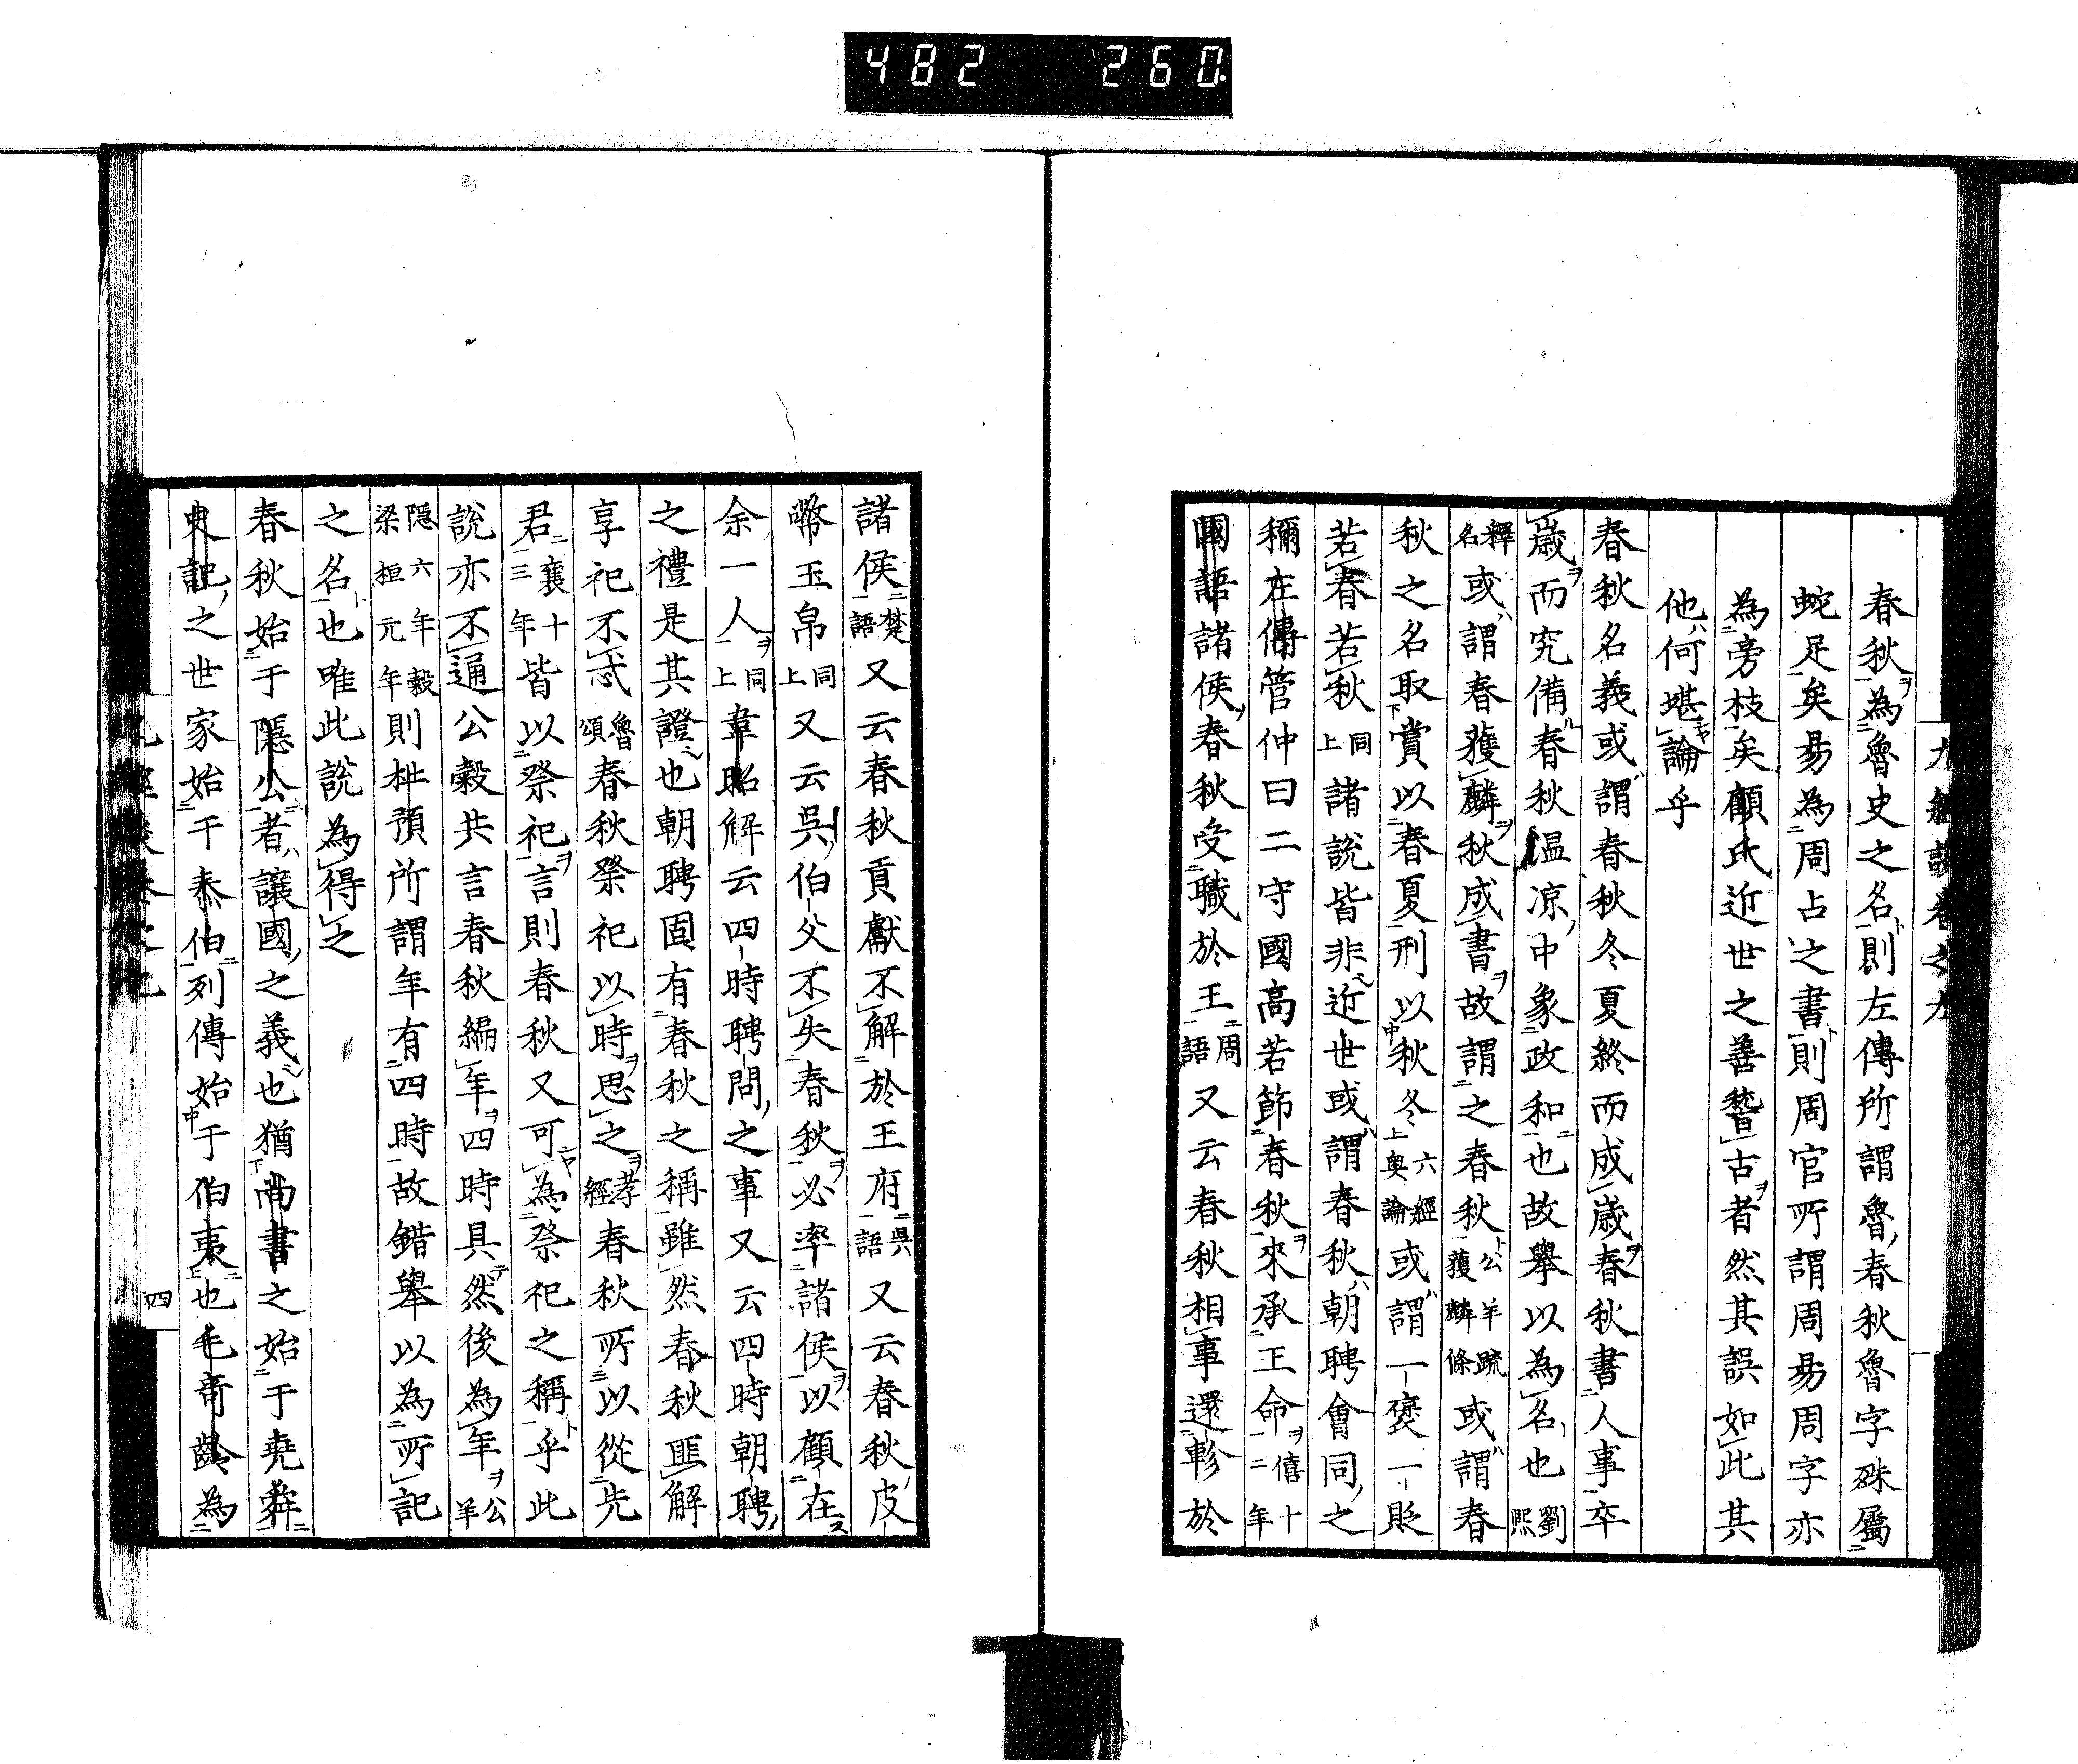 482 260
春秋為魯史之名則左傳所謂魯春秋魯字殊屬
蛇足矣易為周占之書則周官所謂周易周字亦
為旁枝矣顧氏近世之善稽古者然其誤如此其
他何堪論乎
春秋名義或謂春秋冬夏終而成歲春秋書人事卒
歲而究備春秋溫凉中象政和也故舉以為名也劉熙
釋名或謂春獲麟秋成書故謂之春秋公羊疏獲麟條或謂春
秋之名取賞以春夏刑以秋冬六經奧論上或謂一褒一貶
若春若秋同上諸說皆非近世或謂春秋朝聘會同之
稱在傳管仲曰二守國高若節春秋來承王命僖十二年
國語諸侯春秋受職於王周語又云春秋相事還軫於
諸侯楚語又云春秋貢獻不解於王府吳語又云春秋皮
幣玉帛同上又云吳伯父不失春秋必率諸侯以顧在
余一人同上韋昭解云四時聘問之事又云四時朝聘
之禮是其證也朝聘固有春秋之稱雖然春秋匪解
享祀不忒魯頌春秋祭祀以時思之孝經春秋所以從先
君襄十三年皆以祭祀言則春秋又可為祭祀之稱乎此
說亦不通公穀共言春秋編年四時具然後為年公羊
隱六年穀梁桓元年則杜預所謂年有四時故錯舉以為所記
之名也唯此說為得之
春秋始于隱公者讓國之義也猶尚書之始于堯舜
史記之世家始于泰伯列傳始于伯夷也毛奇齡為
四